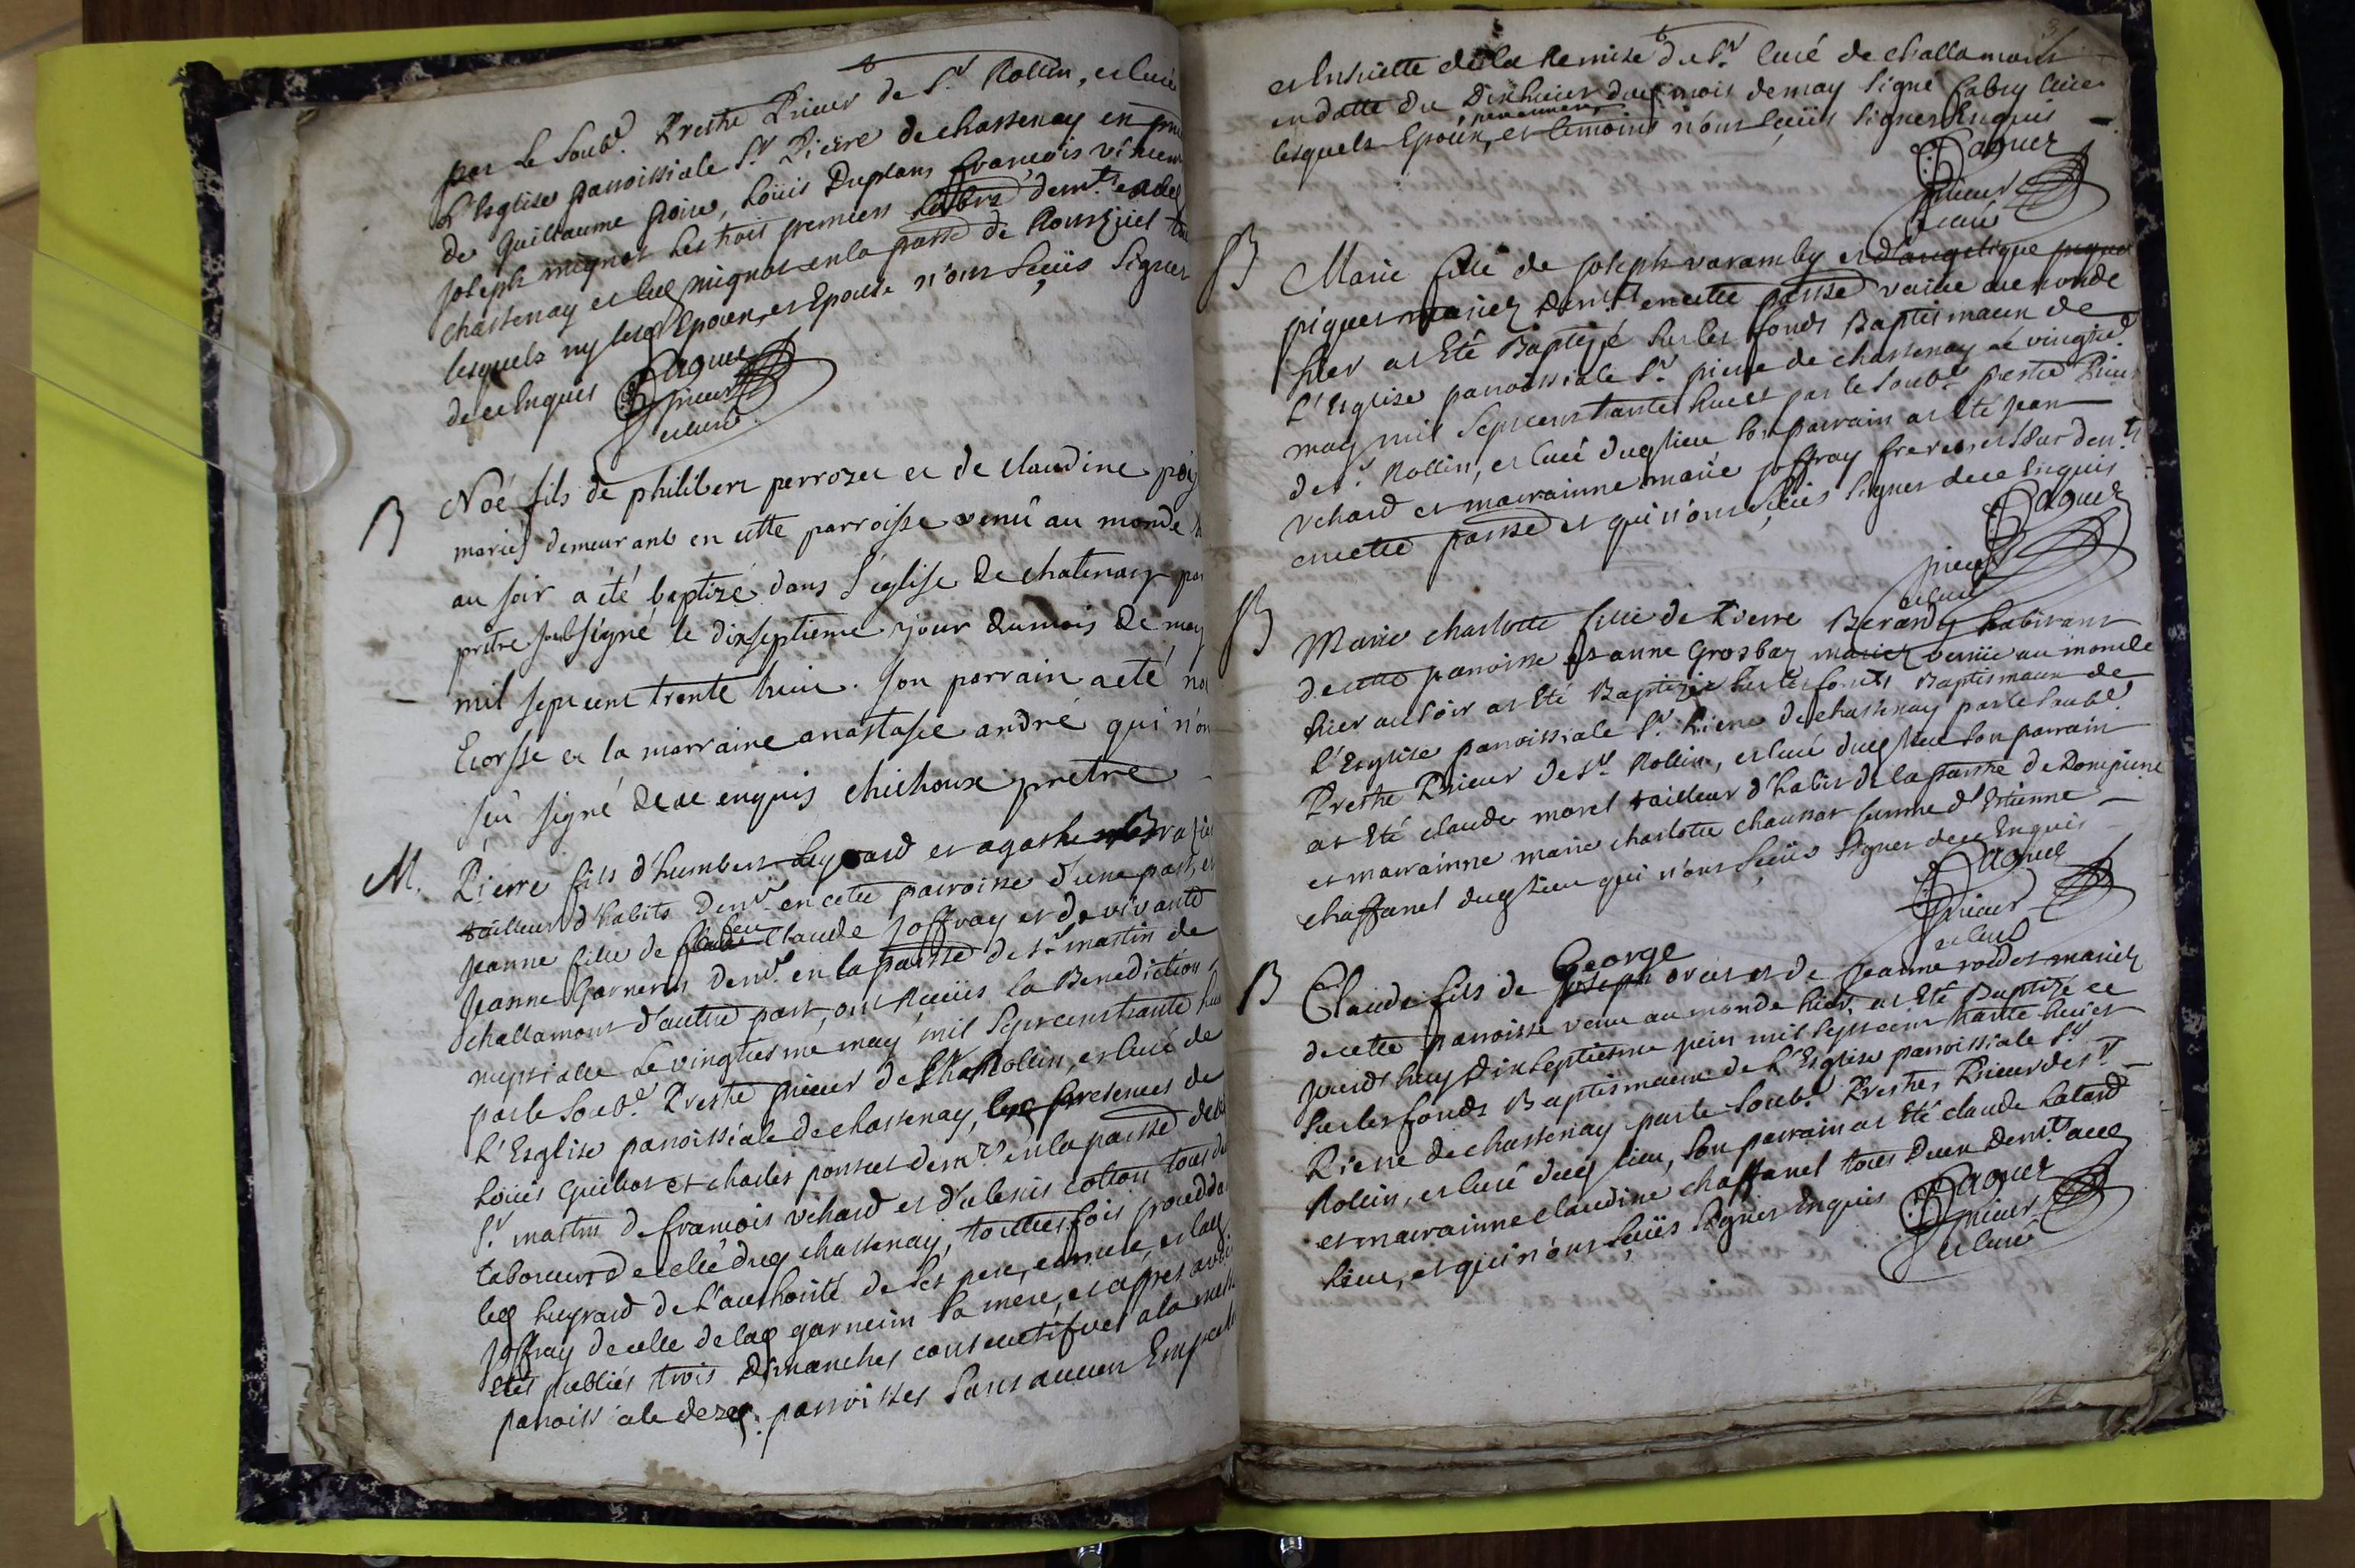 par le Soub.é Prestre Prieur de S.t Rollin, et Curé
L'Esglise parroissiale S.t Pierre de chastenay en
de Guillaume poire, Loüis Duplans françois vincen
joseph mignot Les trois premiers Labrs demts
chastenay et led mignot en la parsse de
lesquels ny lesd Epoux, et Epouse n'ont sçeüs Signer
de ce Enquis Paquet
prieur
et curé
B Noé fils de philibert perrozet et de claudine
mariés demeurant en cette parroisse venû au monde
au soir a été baptizé dans l'église de chatenay par
prêtre soubsigné le dixseptieme jour du mois de may
mil sept cent trente huit. son parrain a eté
Ecorsse et la marraine anastasie andré qui n'on
sçu signé de ce enquis chichoux prêtre
M. Pierre fils d'humbert huguard et agathe
tailleur d'habits demt en cette parroisse d'une part, et
jeanne fille de feu Claude Joffray et de vivante
jeanne Garnerin demt en la parsse de st martin de
challamont d'autre part, ont Reçeüs la Benediction
nuptialle Le vingtiesme may mil Sept cent trente
par le Soub.é Prestre prieur de st Rollin, et Curé de
L'Esglise parroissiale de chastenay, presences de
Loüis Guichot et charles ponset demts en la parsse de
S.t martin de françois vehard et d'alexis cotton tous
Laboureurs de celle dud chastenay, touttes fois
led hugrard de L'authorité de ses pere, et mere, et lad
Joffray de celle de lad garnerin Sa mere, et apres avoir
étés publiés trois Dimanches consecutifves a la
parroissiale desd. parroisses Sans aucun
et ensuitte de la Remise du Sr. Curé de challamont
en datte du Dixhuict dud mois de may Signé fabry Curé
lesquels Epoux, et temoins n'ont sçeüs Signer Enquis
Paquet
prieur
et curé
B Marie fille de joseph varamby et d'angelique
piquet mariez demts en cette parsse venüe au monde
hier at Eté Baptizé Sur les fonds Baptismaux de
L'Esglise parroissiale St. pierre de chastenay
may mil Sept cent trante huict par le Soub.é prestre Prieur
de st Rollin, et Curé dud lieu Son parrain at Eté jean
vehard et marrainne marie joffray demts
en cette parsse et qui n'ont sçeüs Signer de ce Enquis
Paquet
prieur
et curé
B Marie charlotte fille de Pierre Berardy habitant
de cette parroisse et anne Grosbaz mariez venüe au monde
hier au Soir at Eté Baptizée Sur les fonds Baptismaux de
L'Esglise parroissiale St. Pierre de chastenay par le Soub.é
Prestre Prieur de st. Rollin, et Curé dud lieu Son parrain
at Eté claude morel tailleur d'habits de la parsse de Dompierre
et marrainne marie charlotte chaussat femme d'Estienne
chaffanel dud lieu qui n'ont sçeüs Signer de ce Enquis
Paquet
prieur
et curé
George
B Claude fils de joseph et de jeanne mariez
de cette parroisse venu au monde hier, at Eté Baptizé ce
jourd'huy Dixseptiesme juin mil Sept cent trante huict
Sur les fonds Baptismaux de L'Esglise parroissiale St.
Pierre de chastenay par le Soub.é Prestre, Prieur de st.
Rollin, et Curé dud lieu, Son parrain at Eté claude Latard
et marrainne claudine chaffanel tous Deux demts aud
Lieu, et qui n'ont sçeüs Signer Enquis Paquet
prieur
et curé